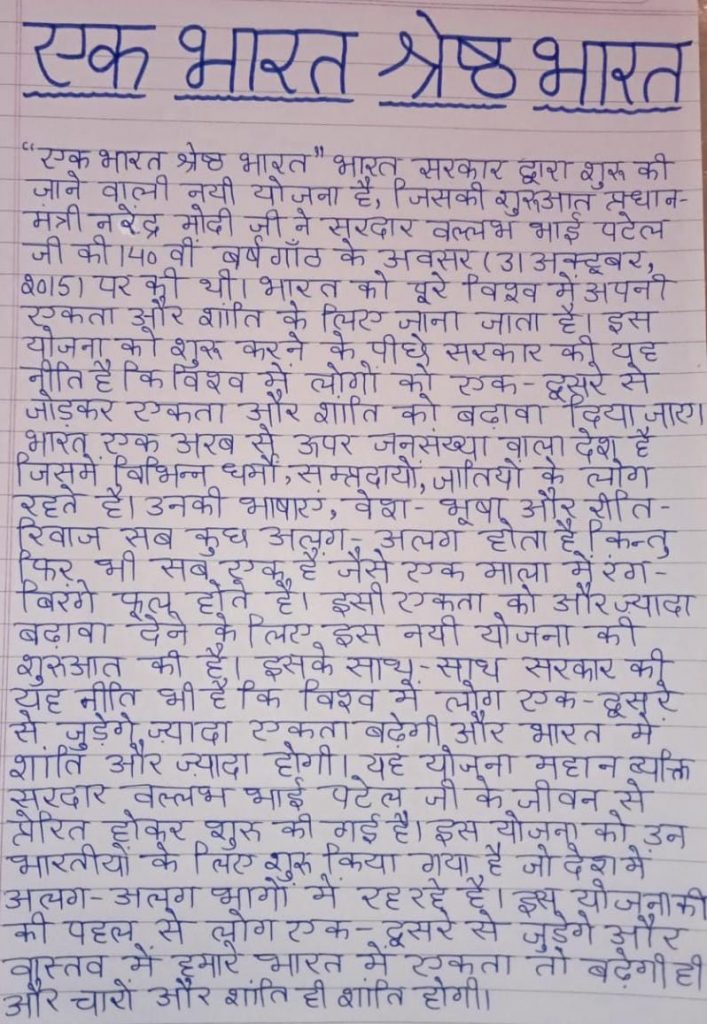 एक भारत श्रेष्ठ भारत
“एक भारत श्रेष्ठ भारत” भारत सरकार द्वारा शुरू की
जाने वाली नयी योजना है, जिसकी शुरुआत प्रधान-
मंत्री नरेंद्र मोदी जी ने सरदार वल्लभ भाई पटेल
जी की 140 वीं बर्षगाँठ के अवसर (31 अक्टूबर,
2015) पर की थी। भारत को पूरे विश्व में अपनी
एकता और शांति के लिए जाना जाता है। इस
योजना को शुरू करने के पीछे सरकार की यह
नीति है कि विश्व में लोगों को एक-दूसरे से
जोड़कर एकता और शांति को बढ़ावा दिया जाए।
भारत एक अरब से ऊपर जनसंख्या वाला देश है
जिसमें विभिन्न धर्मों, सम्प्रदायों, जातियों के लोग
रहते है। उनकी भाषाएं, वेश-भूषा और रीति-
रिवाज सब कुछ अलग-अलग होता है। किन्तु
फिर भी सब एक हैं जैसे एक माला में रंग-
बिरंगे फूल होते है। इसी एकता को और ज्यादा
बढ़ावा देने के लिए इस नयी योजना की
शुरुआत की है। इसके साथ-साथ सरकार की
यह नीति भी है कि विश्व में लोग एक-दूसरे
से जुड़ेगे ज़्यादा एकता बढ़ेगी और भारत में
शांति और ज़्यादा होगी। यह योजना महान व्यक्ति
सरदार वल्लभ भाई पटेल जी के जीवन से
प्रेरित होकर शुरू की गई है। इस योजना को उन
भारतीयों के लिए शुरू किया गया है जो देश में
अलग-अलग भागों में रह रहे है। इस योजना की
की पहल से लोग एक-दूसरे से जुड़ेगे और
वास्तव में हमारे भारत में एकता तो बढ़ेगी ही
और चारों और शांति ही शांति होगी।